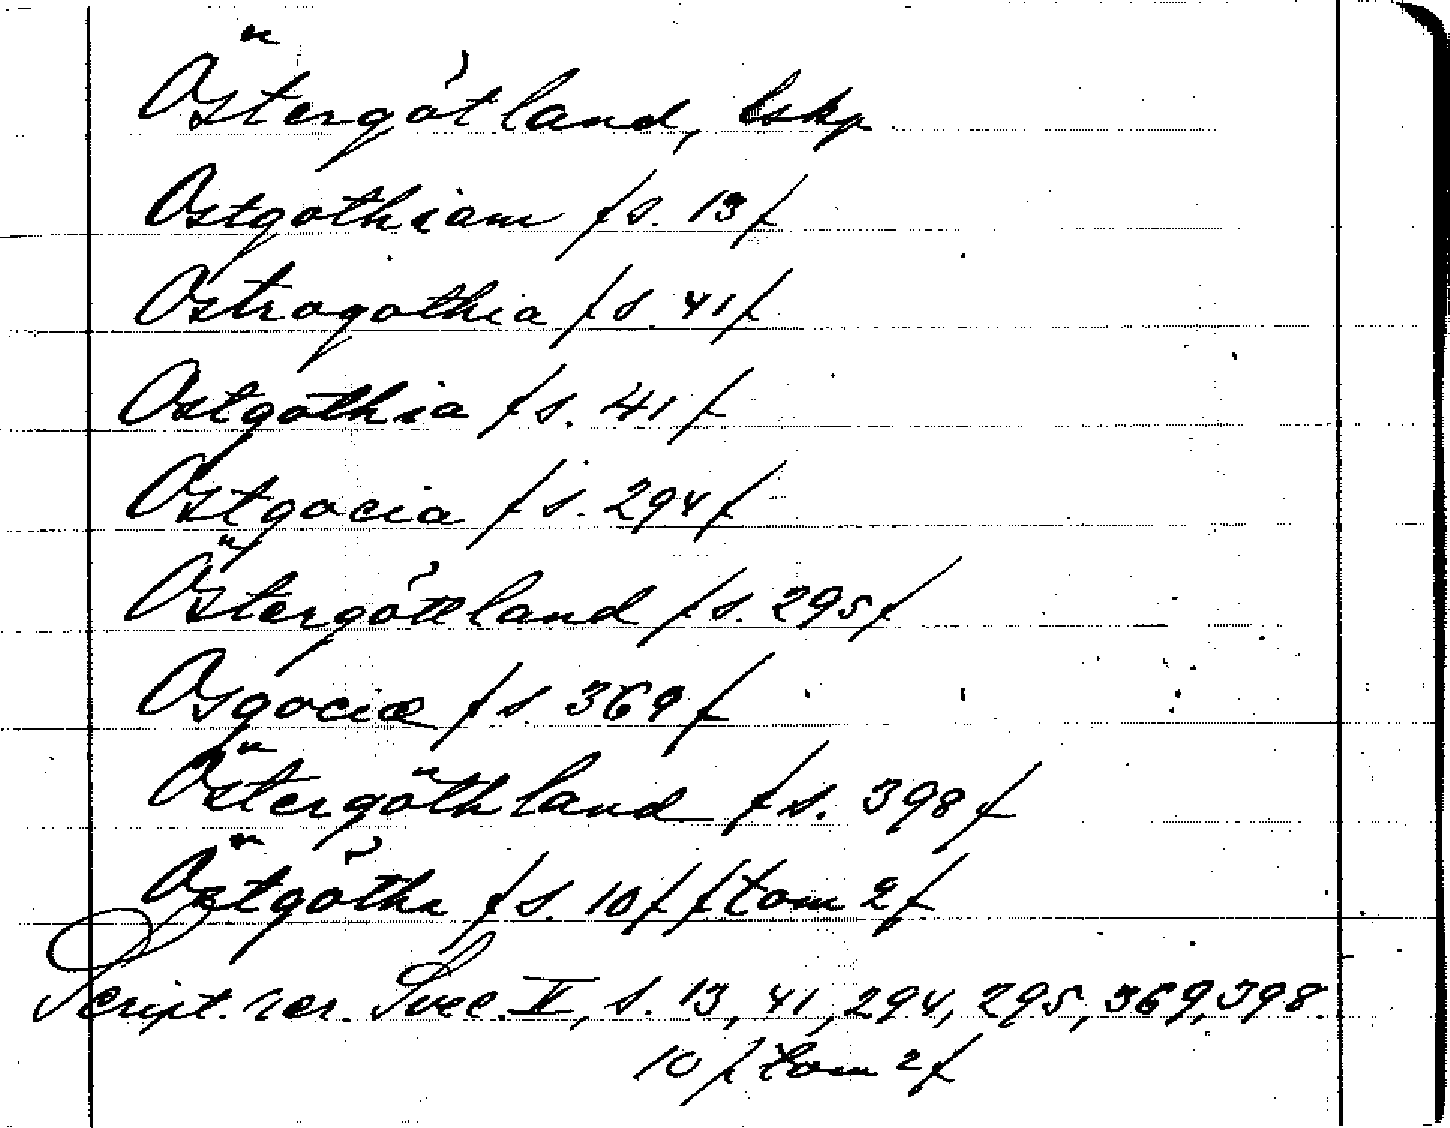 Östergötland, lskp
Ostgothiam /s. 13/
Ostrogothia /s. 41/
Ostgothia /s. 41/
Ostgocia /s. 294/
Östergöttland /s. 295/
Osgociæ /s 369/
Östergöthland /s. 398/
Östgöthe /s. 10/ /tom 2/
Script. rer. Svec. II, s. 13, 41, 294, 295, 369, 398.
10 /tom 2/